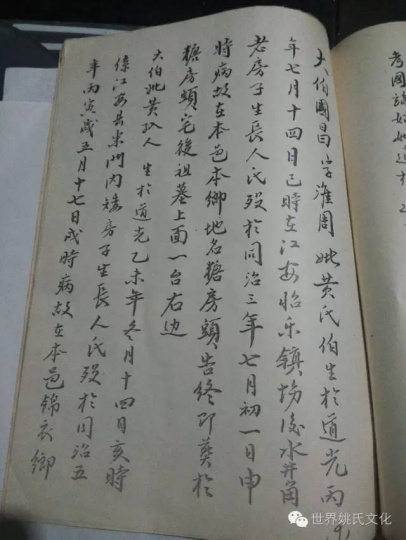 大伯國昌字淮周妣黄氏伯生於道光丙申
年七月十四日巳時在江安怡乐镇场後水井角
老房子生長人氏殁於同治三年七月初一日申
時病故在本邑本鄉地名糖房頭告终即葬於
糖房頭宅後祖墓上面一台右边
大伯妣黄孔人生於道光乙未年冬月十四日亥時
係江安县東門内矮房子生長人氏殁於同治五
年丙寅歲五月十七日戌時病故在本邑锦衣鄉
世界姚氏文化